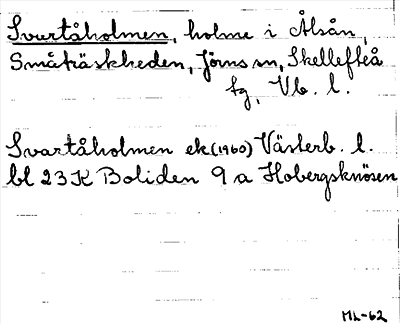 Svartåholmen, holme i Ålsån,
Småträskheden, Jörns sn, Skellefteå
tg, Vb. l.
Svartåholmen ek (1960) Västerb. l.
bl 23 K Boliden 9 a Hobergsknösen
ML-62